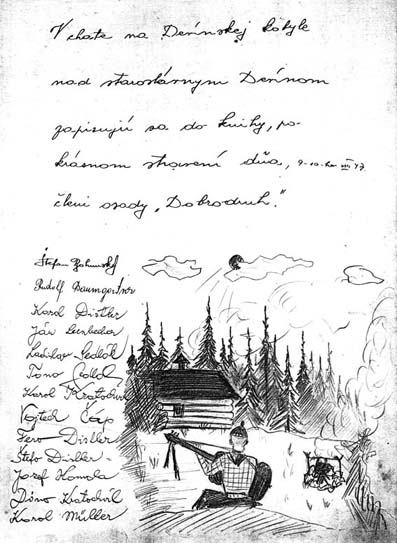 V chate na Devínskej kobyle
nad starostárnym Devínom
zapisujú sa do knihy, po
krásnom strávení dňa, 9-10-ho VIII 47
členi osady „Dobrodruh."
Štefan
Rudolf Baumgartner
Karol Distler
Ján
Ladislav Sedlák
Tono
Karol Kratochvíl
Vojtech Čáp
Fero Distler
Štefo Distler
Jozef Homola
Dino Kratochvíl
Karol Müller